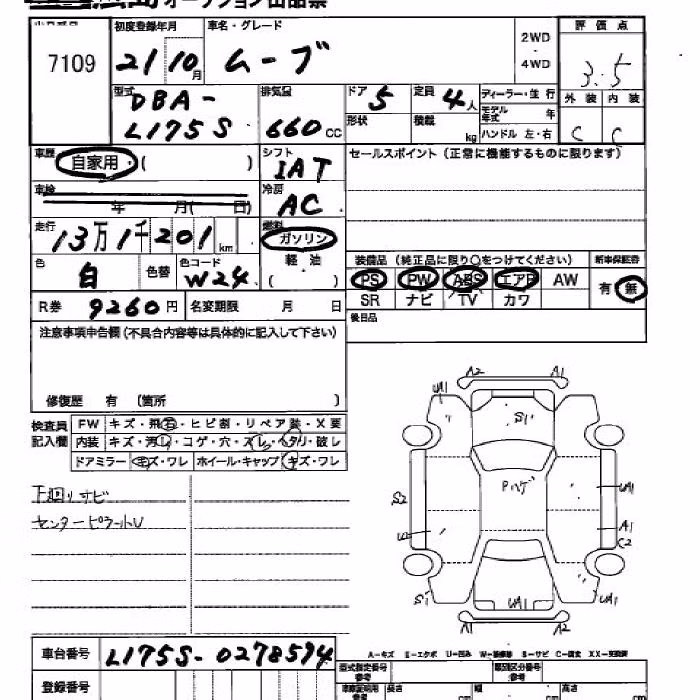 オークション出品票
出品番号 初度登録年月 車名・グレード 2WD・4WD 評価点
7109 21 10月 ムーブ 3.5
型式 排気量 ドア 5 定員 4人 ディーラー・並行 外装 内装
DBA-
L175S 660cc 形状 積載 kg モデル年式 年 C C
ハンドル 左・右
車歴 自家用・( ) シフト IAT セールスポイント(正常に機能するものに限ります)
車検 年 月( 日) 冷房 AC
走行 13万1千201km 燃料 ガソリン
軽油
( )
装備品(純正品に限り○をつけてください) 新車保証書
色 白 色替 色コード W24 PS PW ABS エアB AW 有 無
SR ナビ TV カワ
R券 9260円 名変期限 月 日 後日品
注意事項申告欄(不具合内容等は具体的に記入して下さい)
修復歴 有 (箇所 )
検査員記入欄 FW キズ・飛石・ヒビ割・リペア跡・X要
内装 キズ・汚れ・コゲ・穴・スレ・ヘタリ・破レ
ドアミラー キズ・ワレ ホイール・キャップ キズ・ワレ
下回りサビ
センターピラートU
A2 A1
UA1 S1
Pハゲ
S2 UA1
U A1
C2
S1 UA1 UA1
A1 A2
A-キズ E-エクボ U-凹み W-補修跡 S-サビ C-腐食 XX-交換済
車台番号 L175S-0278594 型式指定番号 参考 類別区分番号 参考
登録番号 車庫証明用 参考 長さ cm 幅 cm 高さ cm